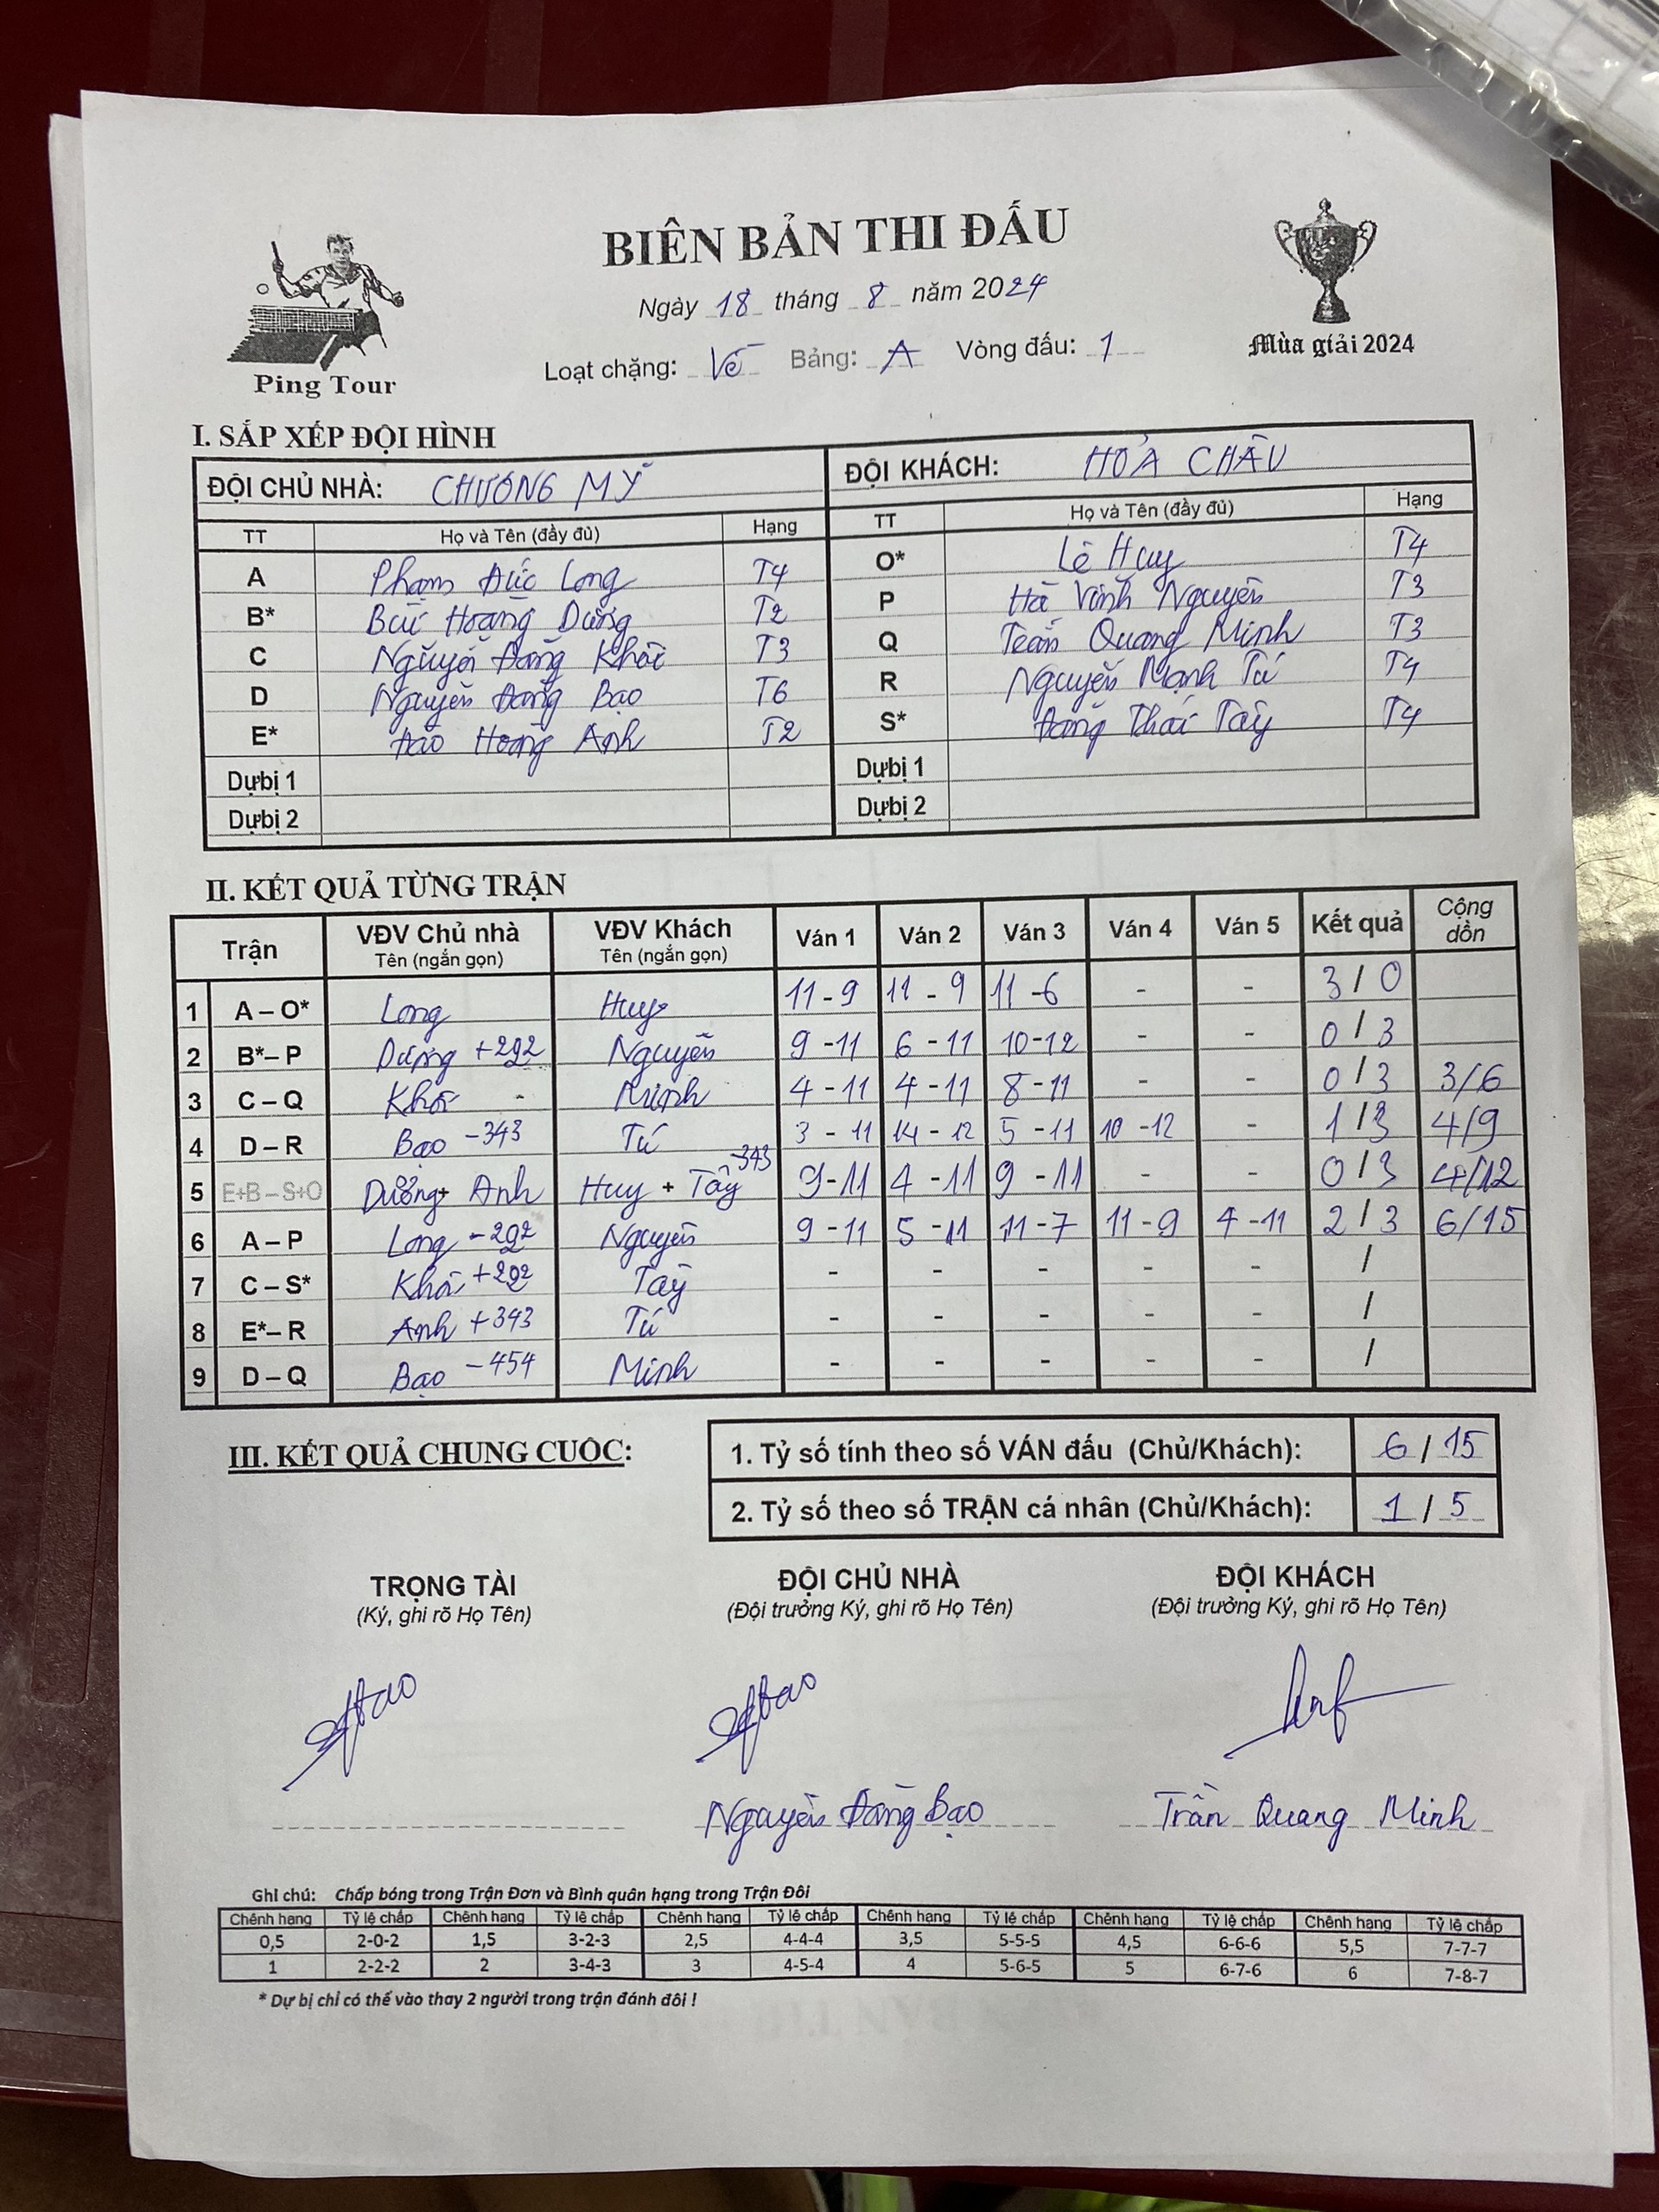 BIÊN BẢN THI ĐẤU
Ngày 18 tháng 8 năm 2024
Loạt chặng: Về Bảng: A Vòng đấu: 1
Ping Tour
Mùa giải 2024
I. SẮP XẾP ĐỘI HÌNH
ĐỘI CHỦ NHÀ: CHƯƠNG MỸ ĐỘI KHÁCH: HỎA CHÂU
TT Họ và Tên (đầy đủ) Hạng TT Họ và Tên (đầy đủ) Hạng
A Phạm Đức Long T4 O* Lê Huy T4
B* Bùi Hoàng Dương T2 P Hà Vĩnh Nguyên T3
C Nguyễn Đăng Khôi T3 Q Trần Quang Minh T3
D Nguyễn Đăng Bạo T6 R Nguyễn Mạnh Tú T4
E* Đào Hoàng Anh T2 S* Đặng Thái Tây T4
Dự bị 1 Dự bị 1
Dự bị 2 Dự bị 2
II. KẾT QUẢ TỪNG TRẬN
Trận VĐV Chủ nhà Tên (ngắn gọn) VĐV Khách Tên (ngắn gọn) Ván 1 Ván 2 Ván 3 Ván 4 Ván 5 Kết quả Cộng dồn
1 A – O* Long Huy 11 - 9 11 - 9 11 - 6 - - 3 / 0
2 B*– P Dương +292 Nguyên 9 - 11 6 - 11 10 - 12 - - 0 / 3
3 C – Q Khôi - Minh 4 - 11 4 - 11 8 - 11 - - 0 / 3 3/6
4 D – R Bạo -343 Tú 3 - 11 14 - 12 5 - 11 10 - 12 - 1 / 3 4/9
5 E+B – S+O Dương + Anh Huy + Tây -343 9 - 11 4 - 11 9 - 11 - - 0 / 3 4/12
6 A – P Long -292 Nguyên 9 - 11 5 - 11 11 - 7 11 - 9 4 - 11 2 / 3 6/15
7 C – S* Khôi +292 Tây - - - - - /
8 E*– R Anh +343 Tú - - - - - /
9 D – Q Bạo -454 Minh - - - - - /
III. KẾT QUẢ CHUNG CUỘC:
1. Tỷ số tính theo số VÁN đấu (Chủ/Khách): 6 / 15
2. Tỷ số theo số TRẬN cá nhân (Chủ/Khách): 1 / 5
TRỌNG TÀI ĐỘI CHỦ NHÀ ĐỘI KHÁCH
(Ký, ghi rõ Họ Tên) (Đội trưởng Ký, ghi rõ Họ Tên) (Đội trưởng Ký, ghi rõ Họ Tên)
Nguyễn Đăng Bạo Trần Quang Minh
Ghi chú: Chấp bóng trong Trận Đơn và Bình quân hạng trong Trận Đôi
Chênh hạng Tỷ lệ chấp Chênh hạng Tỷ lệ chấp Chênh hạng Tỷ lệ chấp Chênh hạng Tỷ lệ chấp Chênh hạng Tỷ lệ chấp Chênh hạng Tỷ lệ chấp
0,5 2-0-2 1,5 3-2-3 2,5 4-4-4 3,5 5-5-5 4,5 6-6-6 5,5 7-7-7
1 2-2-2 2 3-4-3 3 4-5-4 4 5-6-5 5 6-7-6 6 7-8-7
* Dự bị chỉ có thể vào thay 2 người trong trận đánh đôi !